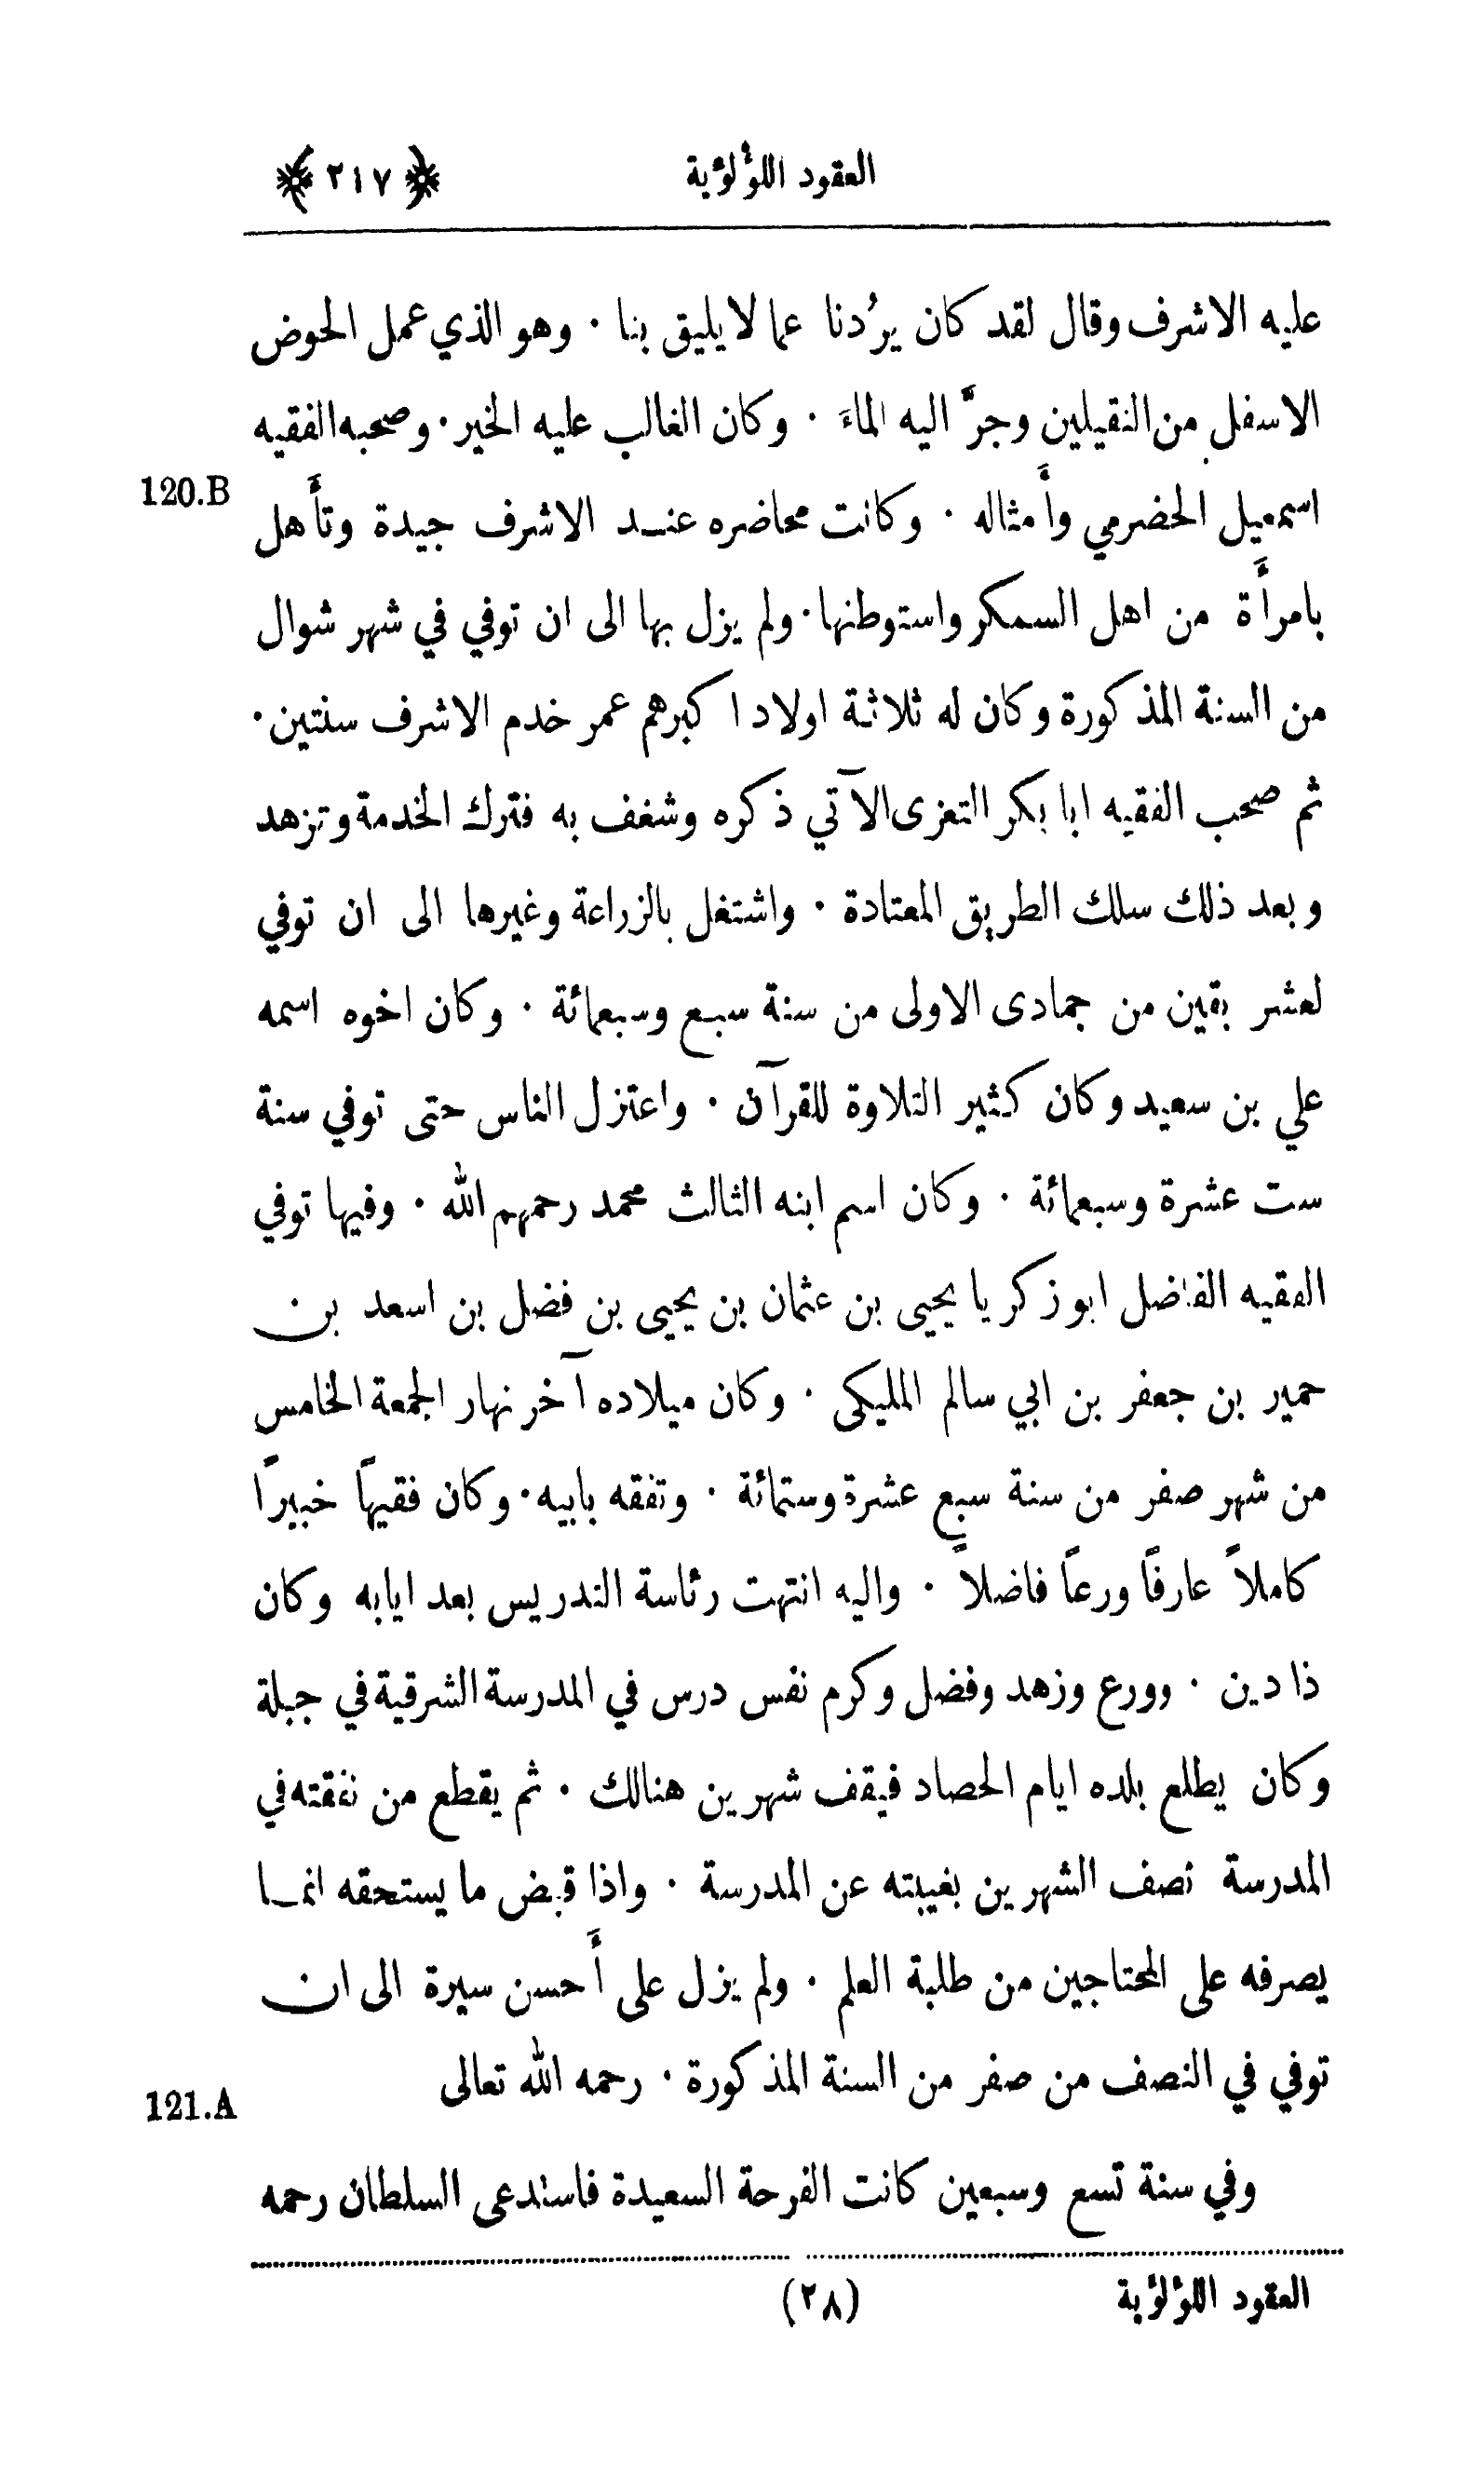 العقود اللؤلؤية ﴿ ٢١٧ ﴾
عليه الاشرف وقال لقد كان يرُدنا عما لا يليق بنا · وهو الذي عمل الحوض
الاسفل من النقيلين وجرَّ اليه الماءَ · وكان الغالب عليه الخير · وصحبه الفقيه
120.B
اسمعيل الحضرمي وأَمثاله · وكانت محاضره عند الاشرف جيدة وتأَهل
بامرأَة من اهل السمكر واستوطنها · ولم يزل بها الى ان توفي في شهر شوال
من السنة المذكورة وكان له ثلاثة اولاد اكبرهم عمر خدم الاشرف سنتين ·
ثم صحب الفقيه ابا بكر التعزى الآتي ذكره وشغف به فترك الخدمة وتزهد
وبعد ذلك سلك الطريق المعتادة · واشتغل بالزراعة وغيرها الى ان توفي
لعشر بقين من جمادى الاولى من سنة سبع وسبعمائة · وكان اخوه اسمه
علي بن سعيد وكان كثير التلاوة للقرآن · واعتزل الناس حتى توفي سنة
ست عشرة وسبعمائة · وكان اسم ابنه الثالث محمد رحمهم الله · وفيها توفي
الفقيه الفاضل ابو زكريا يحيى بن عثمان بن يحيى بن فضل بن اسعد بن
حمير بن جعفر بن ابي سالم المليكى · وكان ميلاده آخر نهار الجمعة الخامس
من شهر صفر من سنة سبع عشرة وستمائة · وتفقه بابيه · وكان فقيهاً خبيراً
كاملاً عارفاً ورعاً فاضلاً · واليه انتهت رئاسة التدريس بعد ايابه وكان
ذا دين · وورع وزهد وفضل وكرم نفس درس في المدرسة الشرقية في جبلة
وكان يطلع بلده ايام الحصاد فيقف شهرين هنالك · ثم يقطع من نفقته في
المدرسة نصف الشهرين بغيبته عن المدرسة · واذا قبض ما يستحقه انما
يصرفه على المحتاجين من طلبة العلم · ولم يزل على أَحسن سيرة الى ان
توفي في النصف من صفر من السنة المذكورة · رحمه الله تعالى
121.A
وفي سنة تسع وسبعين كانت الفرحة السعيدة فاستدعى السلطان رحمه
العقود اللؤلؤية (٢٨)